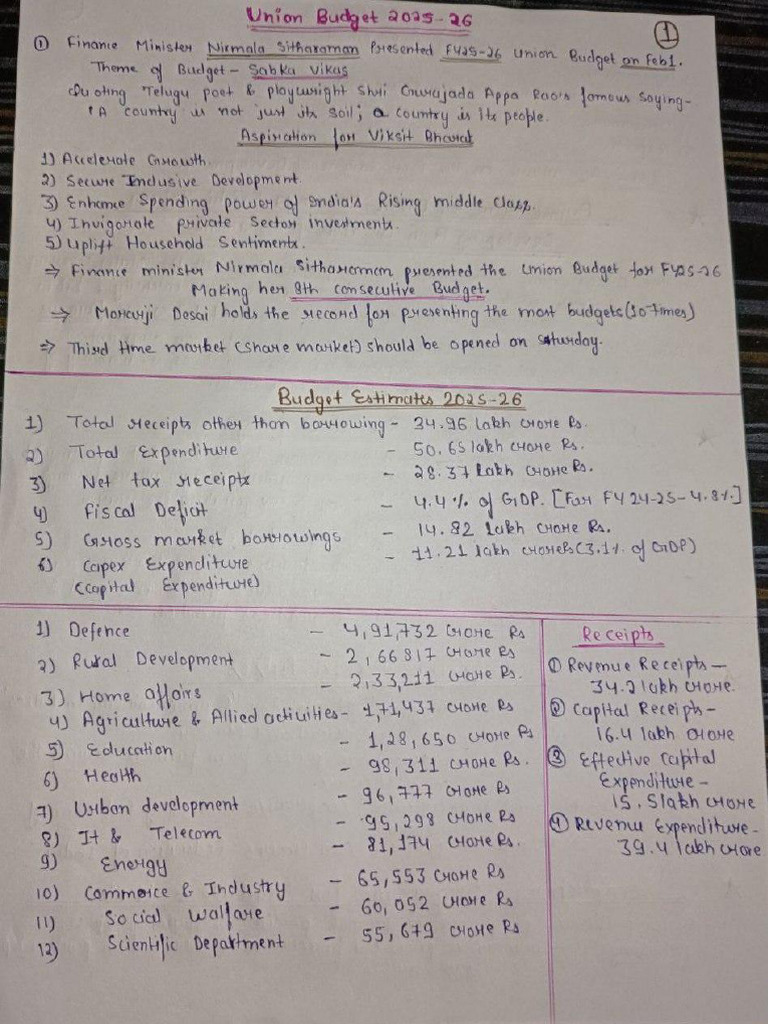 Union Budget 2025-26
1
① Finance Minister Nirmala Sitharaman Presented FY25-26 Union Budget on Feb1.
Theme of Budget - Sabka Vikas
Quoting Telugu poet & playwright Shri Gurajada Appa Rao's famous Saying-
'A country is not just its soil; a country is its people.
Aspiration for Viksit Bharat
1) Accelerate Growth.
2) Secure Inclusive Development
3) Enhance Spending power of India's Rising middle class.
4) Invigorate private Sector investments.
5) Uplift Household Sentiments.
⇒ Finance minister Nirmala Sitharaman presented the Union Budget for FY25-26
Making her 8th consecutive Budget.
⇒ Morarji Desai holds the record for presenting the most budgets (10 Times)
⇒ Third time market (share market) should be opened on Saturday.
Budget Estimates 2025-26
1) Total receipts other than borrowing - 34.96 lakh crore Rs.
2) Total Expenditure - 50.65 lakh crore Rs.
3) Net tax receipts - 28.37 lakh crore Rs.
4) Fiscal Deficit - 4.4% of GDP. [For FY 24-25-4.8%]
5) Gross market borrowings - 14.82 lakh crore Rs.
6) Capex Expenditure - 11.21 lakh crore Rs (3.1% of GDP)
(Capital Expenditure)
1) Defence - 4,91,732 crore Rs
2) Rural Development - 2,66817 crore Rs
3) Home affairs - 2,33,211 crore Rs.
4) Agriculture & Allied activities - 1,71,437 crore Rs
5) Education - 1,28,650 crore Rs
6) Health - 98,311 crore Rs.
7) Urban development - 96,777 crore Rs
8) It & Telecom - 95,298 crore Rs
9) Energy - 81,174 crore Rs.
10) Commerce & Industry - 65,553 crore Rs
11) Social Walfare - 60,052 crore Rs
12) Scientific Department - 55,679 crore Rs
Receipts
① Revenue Receipts -
34.2 lakh crore.
② Capital Receipts -
16.4 lakh crore
③ Effective Capital
Expenditure -
15.5 lakh crore
④ Revenue Expenditure -
39.4 lakh crore